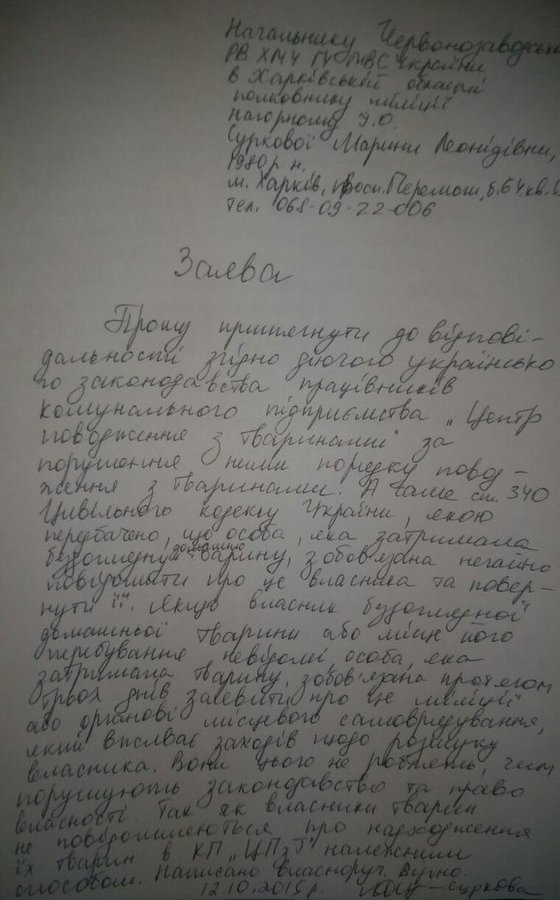 Начальнику Червонозаводського
РВ ХМУ ГУМВС України
в Харківській області
полковнику міліції
Нагорному
Суркової Марини Леонідівни,
1980 р. н.
м. Харків, просп. Перемоги, б. 64 кв.
тел. 068-09-22-006
Заява
Прошу притягнути до відпові-
дальності згідно діючого українсько
го законодавства працівників
комунального підприємства „Центр
поводження з тваринами" за
порушення ними порядку повод-
ження з тваринами. А саме ст. 340
Цивільного кодексу України, якою
передбачено, що особа, яка затримала
бездоглядну домашню тварину, зобов'язана негайно
повідомити про це власника та повер-
нути її. Якщо власник бездоглядної
домашньої тварини або місце його
перебування невідомі, особа, яка
затримала тварину, зобов'язана протягом
трьох днів заявити про це міліції
або органові місцевого самоврядування,
який вживає заходів щодо розшуку
власника. Вони цього не роблять, чим
порушують законодавство та право
власності. Так як власники тварин
не повідомляються про надходження
їх тварин в КП „ЦПзТ" належним
способом. Написано власноруч. Вірно.
12.10.2015 р. Суркова